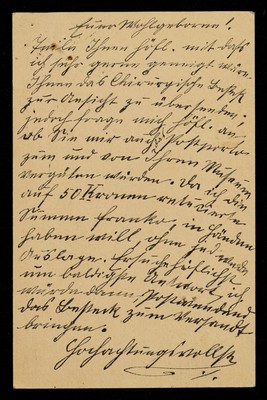 Euer Wohlgeboren!
Teile Ihnen höfl. mit daß
ich sehr gerne geneigt wäre
Ihnen das Chirurgische Besteck
zur Ansicht zu übersenden.
jedoch frage mich höfl. an
ob Sie mir auch das Postporto
zum und von Ihrem Museum
vergüten würden. Da ich die
auf 50 Kronen
Summe franko in Händen
haben will ohne jed. weder
Auslage. Ersuche höflichst
um baldigste Antwort, ich
würde dann Postwendend
das Besteck zum Versandt
bringen.
Hochachtungsvollst